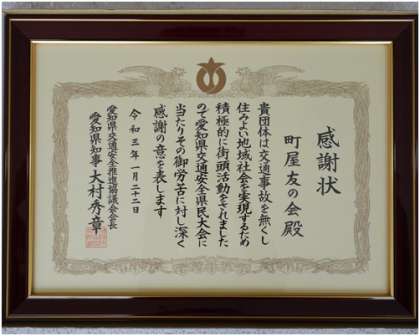 感謝状
町屋友の会殿
貴団体は交通事故を無くし
住みよい地域社会を実現するため
積極的に街頭活動をされました
ので愛知県交通安全県民大会に
当たりその御労苦に対し深く
感謝の意を表します
令和三年一月二十二日
愛知県交通安全推進協議会会長
愛知県知事大村秀章